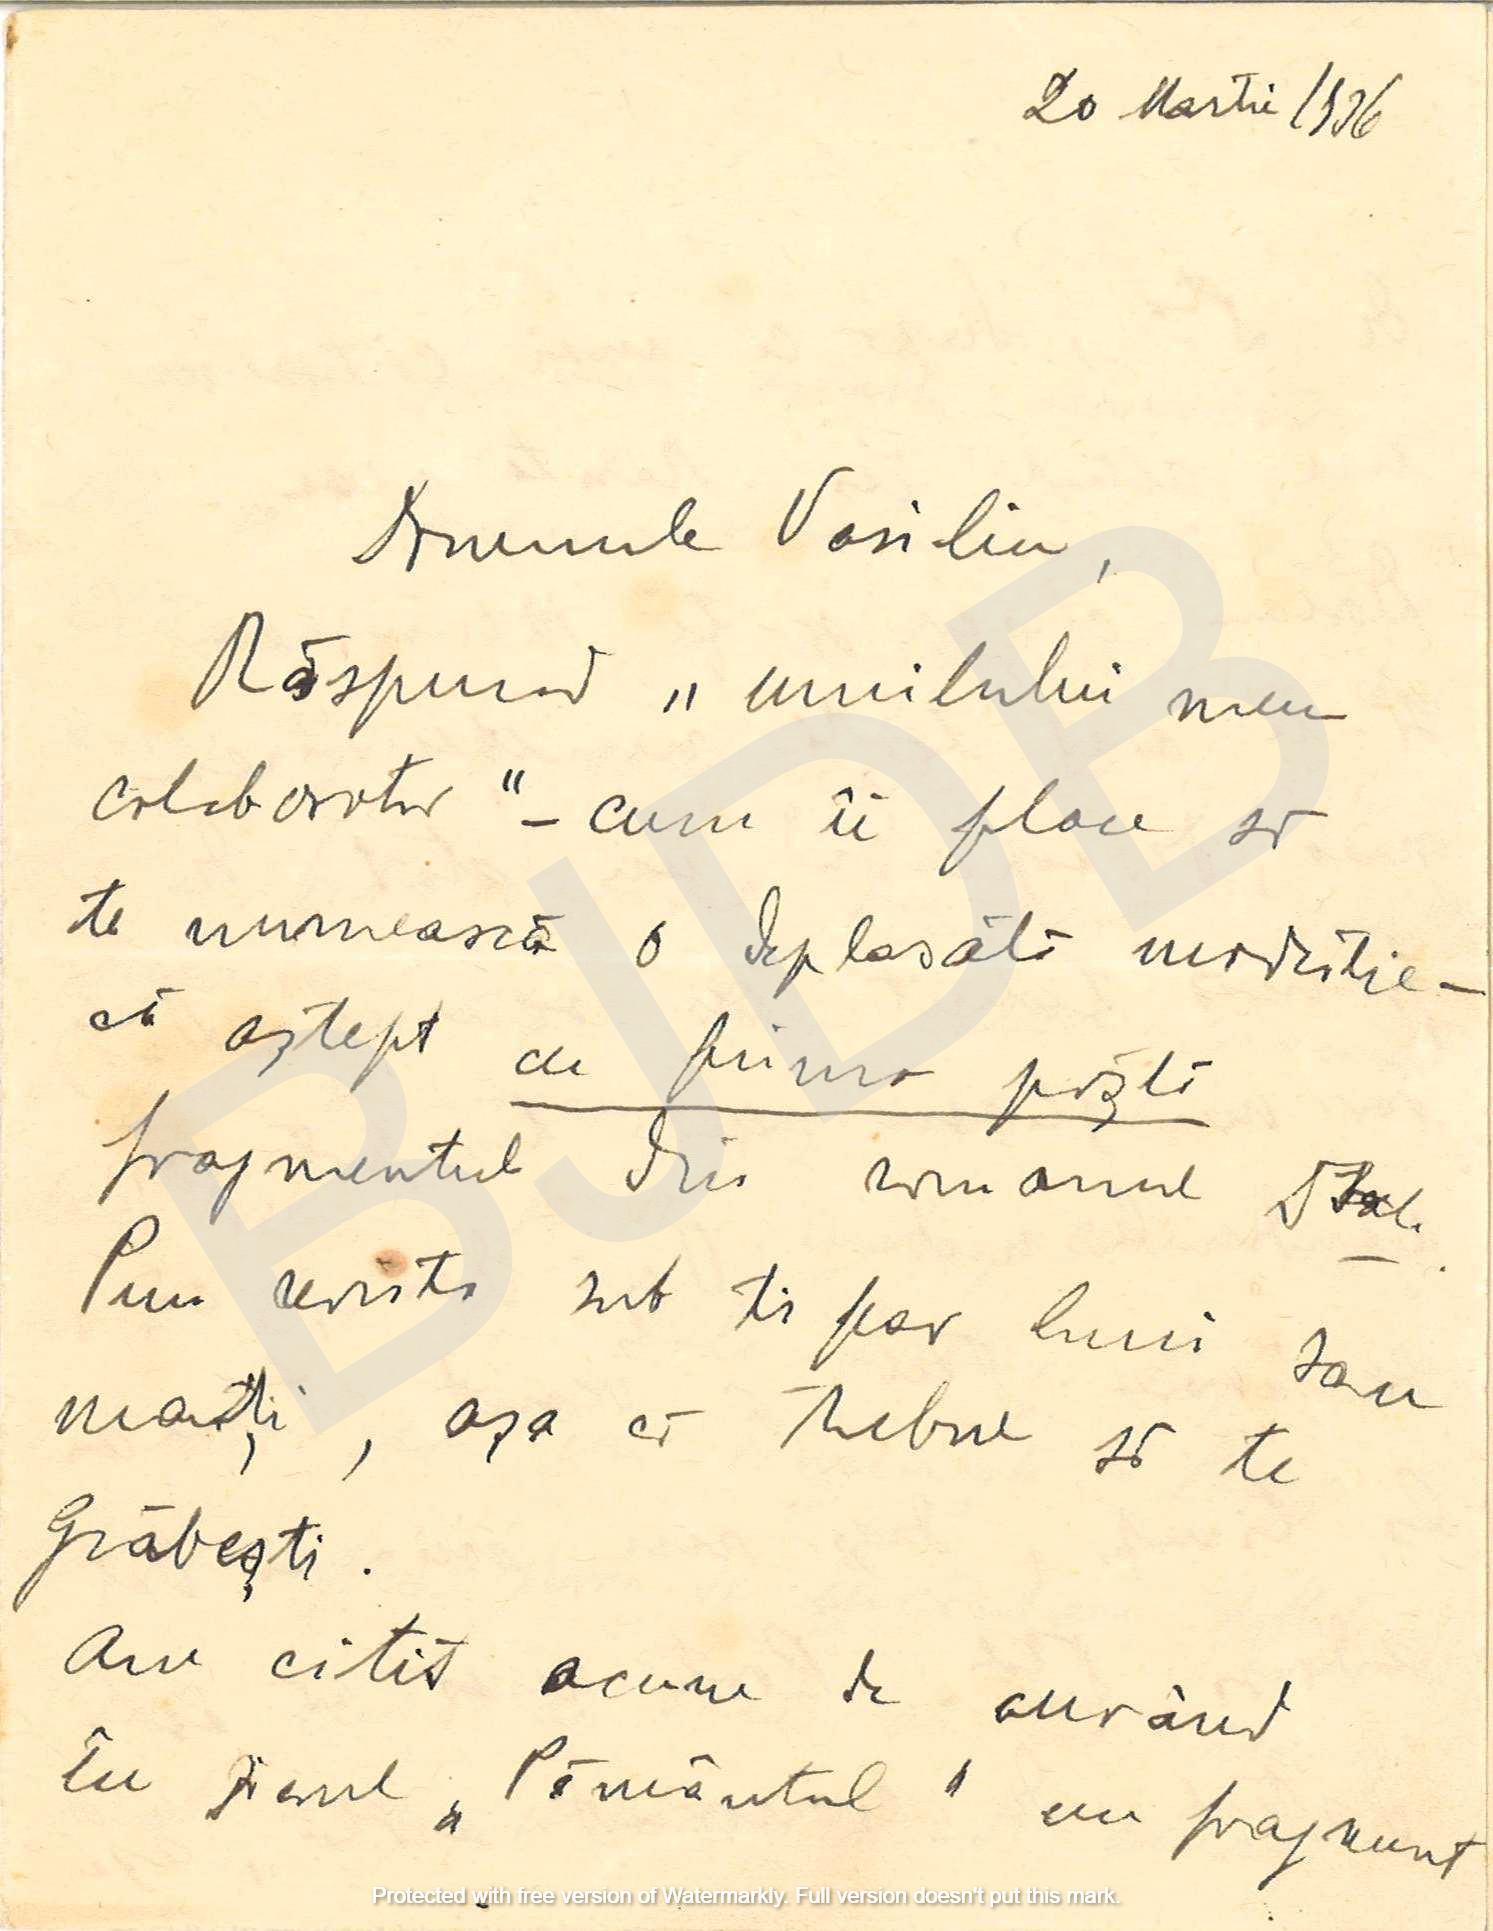 20 Martie 1936
Domnule Vasiliu,
Răspund „umilului meu
colaborator" – cum îi place să
te numească o deplasată modestie –
că aștept cu prima poștă
fragmentul din romanul
Pun revista sub tipar luni sau
marți, așa că trebue să te
grăbești.
Am citit acum de curând
în ziarul „Pământul" un fragment
BJDB
Protected with free version of Watermarkly. Full version doesn't put this mark.